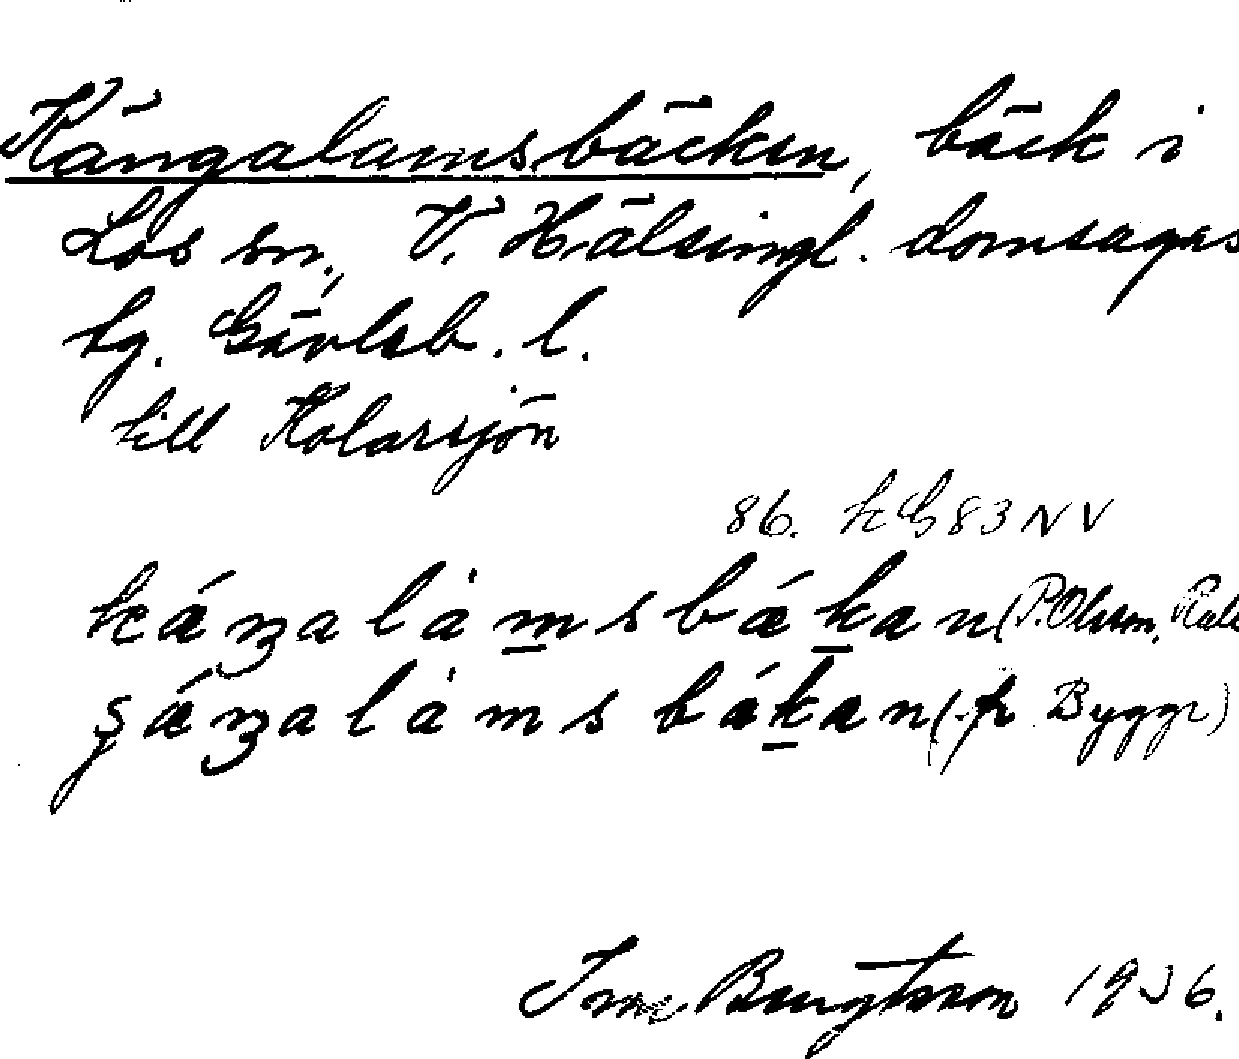 Kängalamsbäcken, bäck i
Los sn., V. Hälsingl. domsagas
tg. Gävleb. l.
till Kolarsjön
86. hG83NV
káŋalȧmsbǽkan (P. Olsson,
ʂǽŋalȧmsbǽkan ( Byggr)
Bengtsson 1936.